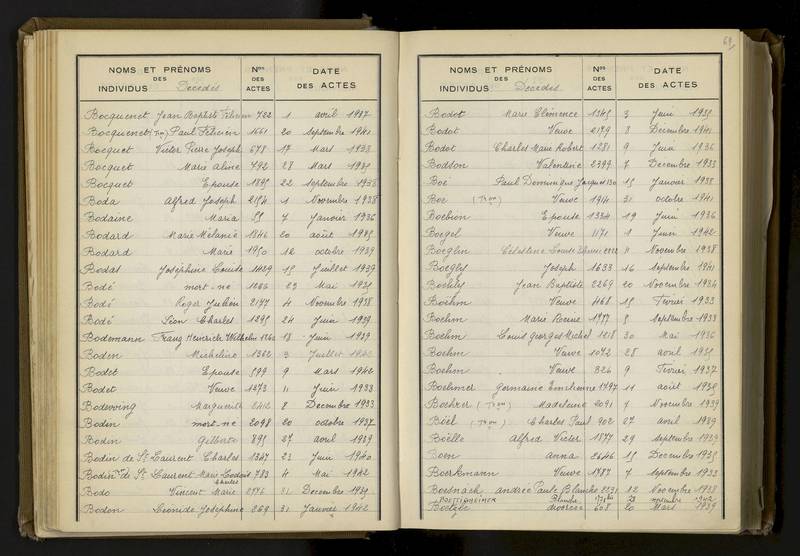 NOMS ET PRÉNOMS DES INDIVIDUS Décédés Nos DES ACTES DATE DES ACTES
Bocquenet Jean Baptiste Félicien 722 1 avril 1937
Bocquenet (Tron) Paul Félicien 1661 20 Septembre 1941
Bocquet Victor Pierre Joseph 678 17 Mars 1933
Bocquet Marie Aline 792 28 Mars 1935
Bocquet Epouse 1895 22 Septembre 1938
Boda Alfred Joseph 2154 1 Novembre 1938
Bodaine Maria 55 7 Janvier 1936
Bodard Marie Mélanie 1346 20 août 1935
Bodard Marie 1950 12 octobre 1939
Bodat Joséphine Louise 1429 15 Juillet 1939
Bodé mort-né 23 Mai 1935
Bodé Roger Julien 2177 4 Novembre 1938
Bodé Léon Charles 1295 24 Juin 1939
Bodemann Franz Heinrich Wilhelm 1262 18 Juin 1939
Boden Micheline 1362 3 Juillet
Bodet Epouse 599 9 Mars 1942
Bodet Veuve 1273 11 Juin 1933
Bodevving Marguerite 2412 8 Decembre 1933
Bodin mort-né 2098 20 octobre 1937
Bodin Gilberte 895 27 avril 1939
Bodin de St Laurent Charles 1347 23 Juin 1940
Bodin de St Laurent Marie Charles 783 4 Mai 1942
Bodo Vincent Marie 2776 31 Decembre 1935
Bodon Léonide Joséphine 269 31 Janvier 1942
68
NOMS ET PRÉNOMS DES INDIVIDUS Décédés Nos DES ACTES DATE DES ACTES
Bodot Marie Clémence 1345 3 Juin 1935
Bodot Veuve 2179 8 Decembre 1941
Bodot Charles Marie Robert 1281 9 Juin 1936
Bodson Valentine 2399 7 Decembre 1933
Boé Paul Dominique Jacques 130 15 Janvier 1938
Boe (Tron) Veuve 1914 31 octobre 1941
Boebion Epouse 1334 19 Juin 1936
Boegel Veuve 1171 1 Juin 1942
Boeglin Célestine Louise 2222 11 Novembre 1938
Boegly Joseph 1633 16 Septembre 1941
Jean Baptiste 2269 20 Novembre 1934
Boehm Veuve 468 15 Fevrier 1933
Boehm Marie 1777 5 Septembre 1933
Boehm Louis Georges Michel 1218 30 Mai 1936
Boehm Veuve 1072 28 avril 1935
Boehm Veuve 326 9 Février 1937
Boehmer Germaine Emilienne 1797 11 août 1935
Boehrer (Tron) Madeleine 2091 7 Novembre 1939
Böel (Tron) Charles Paul 902 27 avril 1939
Böelle Alfred Victor 1877 29 Septembre 1939
Boen Anna 2646 15 Decembre 1935
Boerkmann Veuve 1787 7 Septembre 1933
Boesnach Andrée Paule Blanche 2231 12 Novembre 1938
BOETTGHEIMER Blanche 23 novembre 1942
divorcée 608 20 Mars 1939